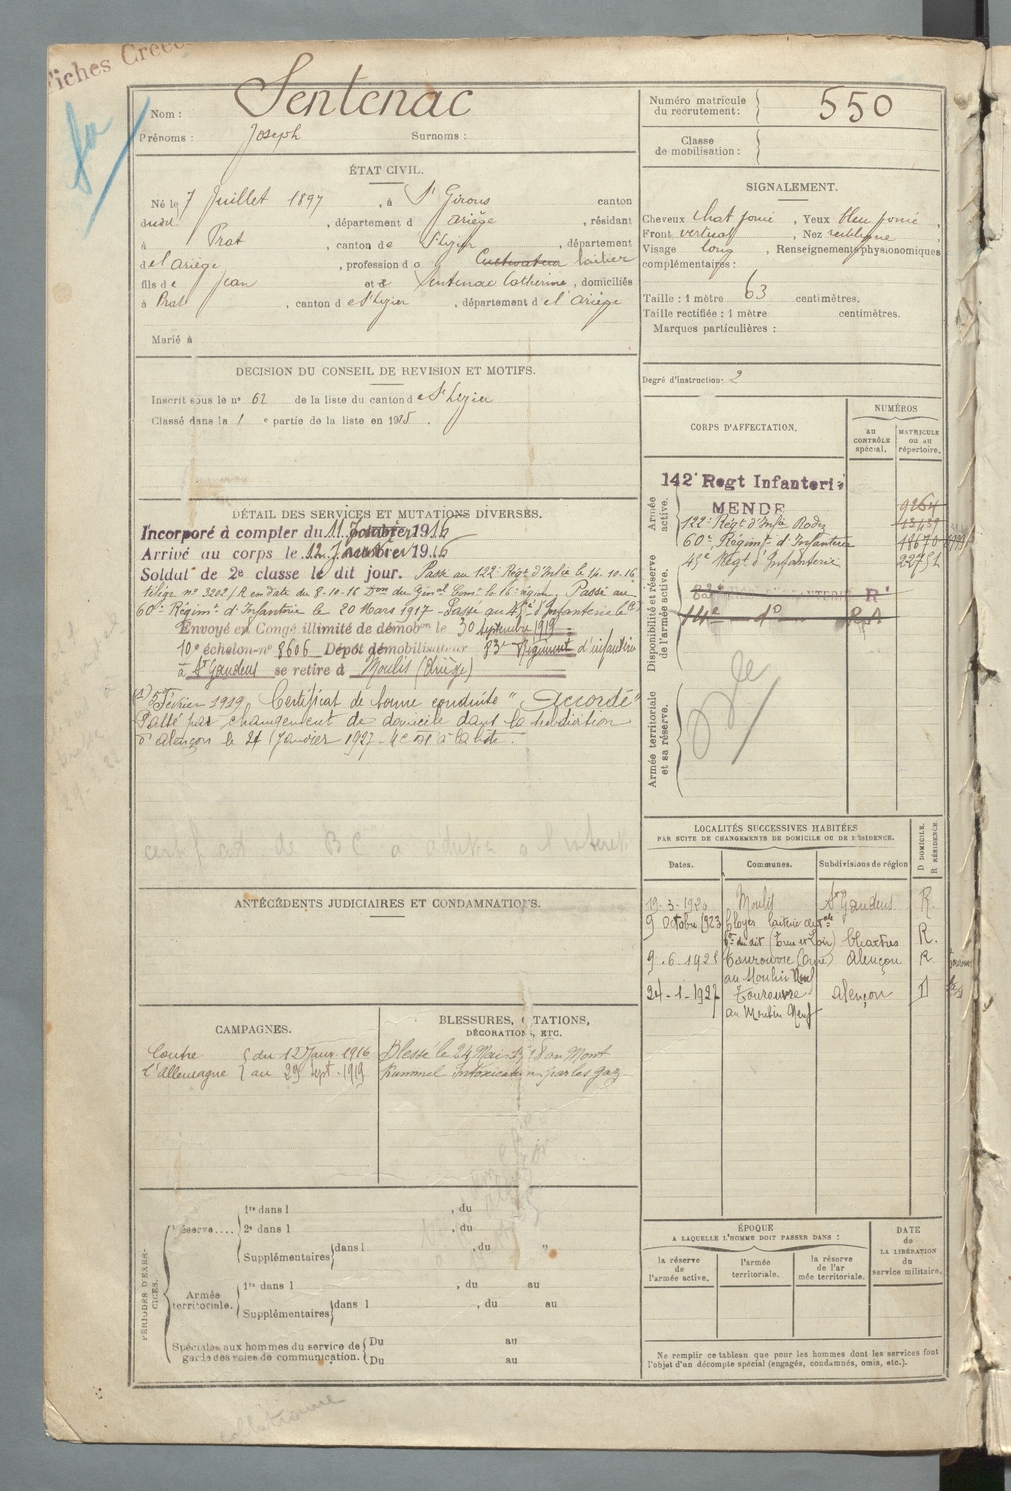 Fiches Créées
Nom : Sentenac
Prénoms : Joseph Surnoms :
Numéro matricule du recrutement : 550
Classe de mobilisation :
ÉTAT CIVIL.
Né le 7 Juillet 1897, à St Girons canton
dudit, département d Ariège, résidant
à Prat, canton de St Lizier, département
de l'Ariège, profession d Cultivateur laitier
fils de Jean et de Sentenac Catherine, domiciliés
à Prat, canton de St Lizier, département de l'Ariège
Marié à
SIGNALEMENT.
Cheveux chat foncé, Yeux bleu foncé,
Front vertical, Nez rectiligne
Visage long, Renseignements physionomiques
complémentaires :
Taille : 1 mètre 63 centimètres.
Taille rectifiée : 1 mètre centimètres.
Marques particulières :
DÉCISION DU CONSEIL DE REVISION ET MOTIFS.
Inscrit sous le n° 62 de la liste du canton de St Lizier
Classé dans la 1 e partie de la liste en 1915.
Degré d'instruction : 2
CORPS D'AFFECTATION.
NUMÉROS
au CONTRÔLE spécial.
MATRICULE ou au répertoire.
Armée active.
142e Regt Infanterie
MENDE 9264
122e Régt d'Infie Rodez 13439
60e Régimt d'Infanterie 18670
45e Régt d'Infanterie 22752
Disponibilité et réserve de l'armée active.
14e do
Armée territoriale et sa réserve.
DÉTAIL DES SERVICES ET MUTATIONS DIVERSES.
Incorporé à compter du 11 Janvier 1916
Arrivé au corps le 12 Janvier 1916
Soldat de 2e classe le dit jour. Passé au 122e Régt d'Infie le 14-10-16
télégr n° 3202/R en date du 8-10-16 Don du Génal Comt la 16e région. Passé au
60e Régimt d'Infanterie le 20 Mars 1917 - Passé au 45e d'Infanterie le (1)
Envoyé en Congé illimité de démobon le 30 septembre 1919
10e échelon n° 8606 Dépôt démobilisateur 83e Régiment d'infanterie
à St Gaudens se retire à Moulis (Ariège)
(1) 5 Février 1919, Certificat de bonne conduite "Accordé"
Passé par changement de domicile dans la subdivision
d'Alençon le 24 Janvier 1927
certificat de BC a l'intéret
ANTÉCÉDENTS JUDICIAIRES ET CONDAMNATIONS.
LOCALITÉS SUCCESSIVES HABITÉES
PAR SUITE DE CHANGEMENTS DE DOMICILE OU DE RÉSIDENCE.
Dates. Communes. Subdivisions de région D DOMICILE. R RÉSIDENCE.
19-3-1920 Moulis St Gaudens R.
9 Octobre 1923 Cloyes laiterie centrale
(Eure et Loir) Chartres R.
9.6.1925 Tourouvre (Orne) Alençon R
au Moulin Neuf
24-1-1927 Tourouvre Alençon D
au Moulin Neuf
CAMPAGNES.
Contre l'Allemagne du 12 Janv. 1916 au 29 Sept. 1919
BLESSURES, CITATIONS, DÉCORATIONS, ETC.
Blessé le 24 Mai 1918 au Mont
Kummel Intoxication par les gaz
PÉRIODES D'EXERCICES.
Réserve....
1re dans l , du
2e dans l , du
Supplémentaires dans l , du "
Armée territoriale.
1re dans l , du au
Supplémentaires dans l , du au
Spéciales aux hommes du service de garde des voies de communication.
Du au
Du au
ÉPOQUE
A LAQUELLE L'HOMME DOIT PASSER DANS :
la réserve de l'armée active.
l'armée territoriale.
la réserve de l'armée territoriale.
DATE de LA LIBÉRATION du service militaire.
Ne remplir ce tableau que pour les hommes dont les services font
l'objet d'un décompte spécial (engagés, condamnés, omis, etc.).
collationné